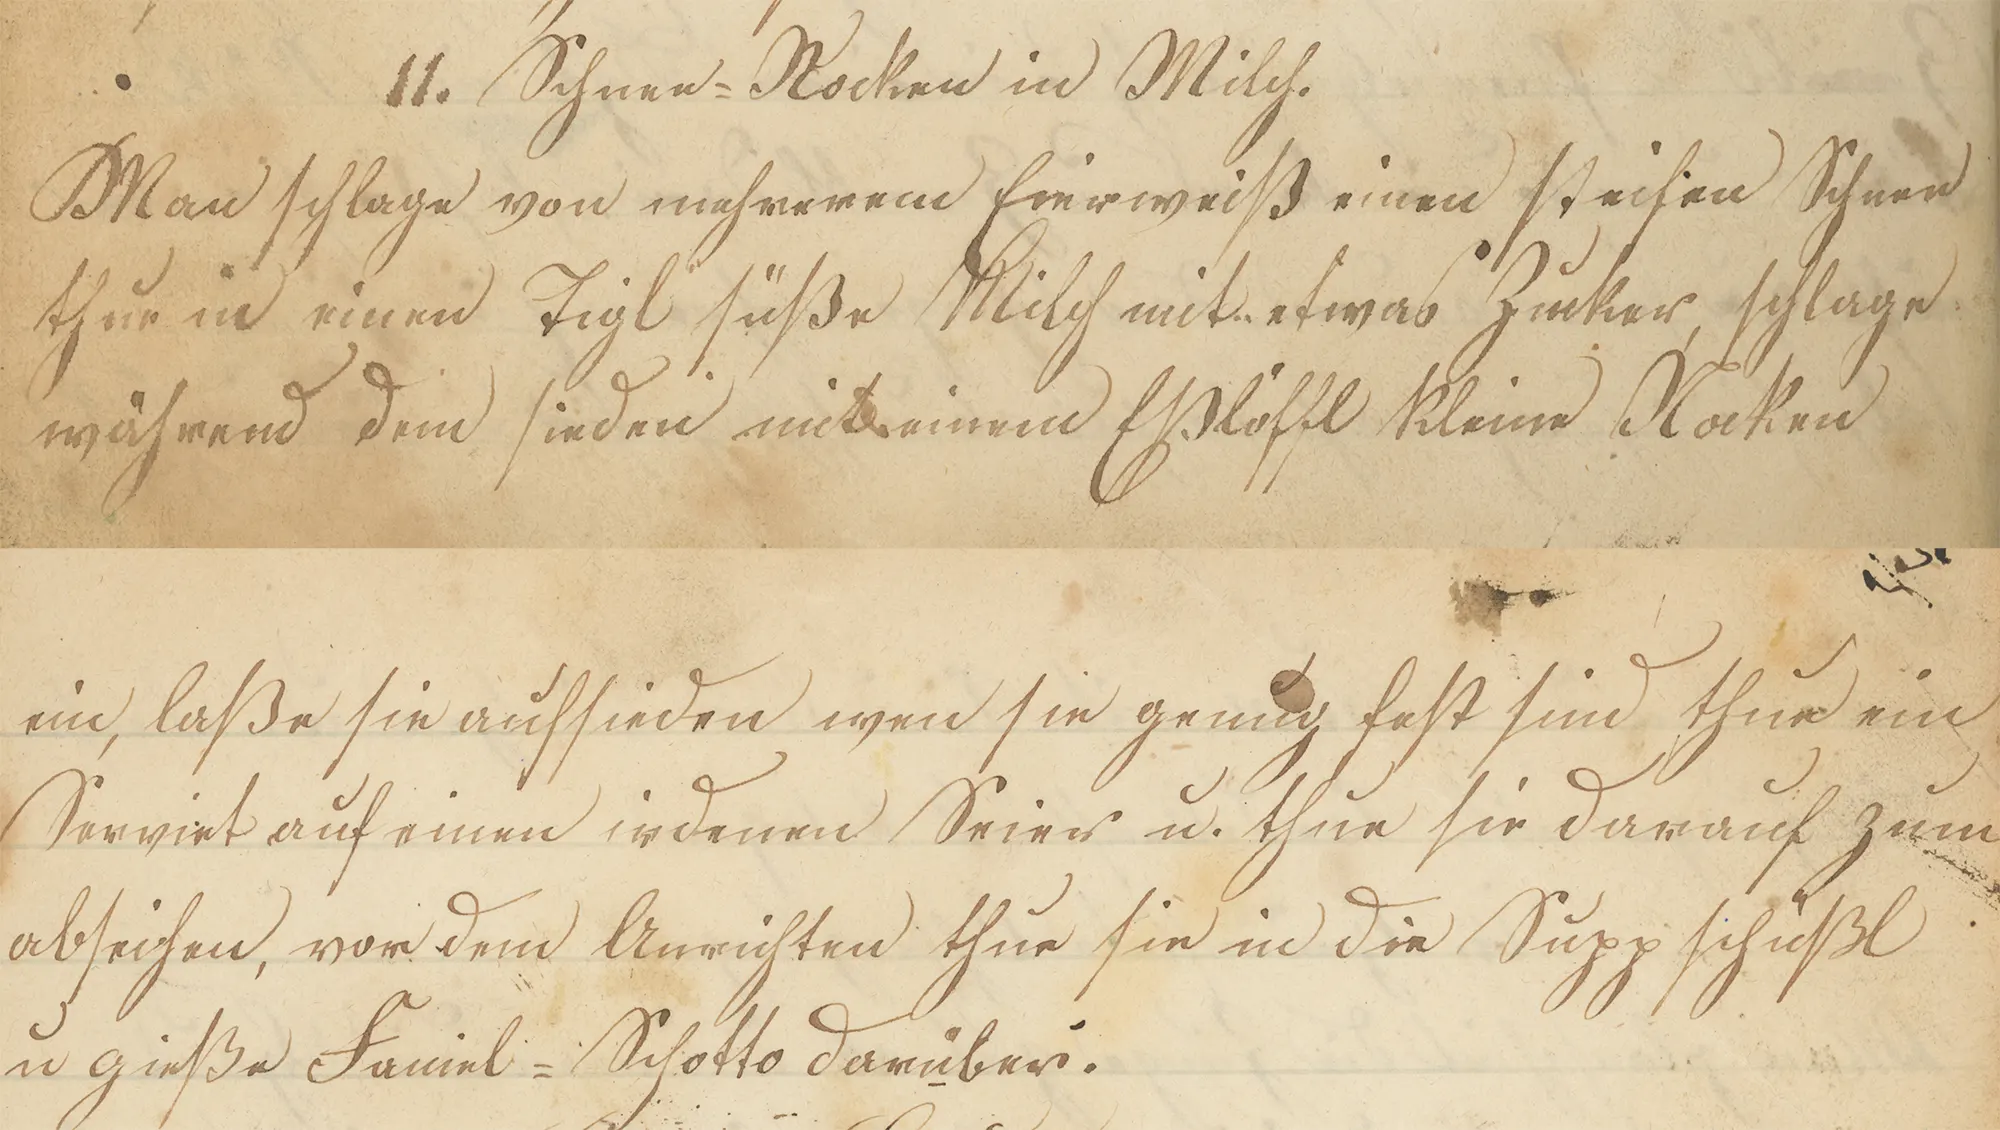 11. Schnee=Nocken in Milch.
Man schlage von mehrerem Eierweiß einen steifen Schnee
thue in einen Tigl süße Milch mit etwas Zucker, schlage
während dem sieden mit einem Eßlöffl kleine Nocken
ein, laße sie aufsieden wen sie genug fest sind thue ein
Serviet auf einen irdenen Seier u. thue sie darauf zum
abseihen, vor dem Anrichten thue sie in die Supp schüßl
u gieße Faniel=Schotto darüber.